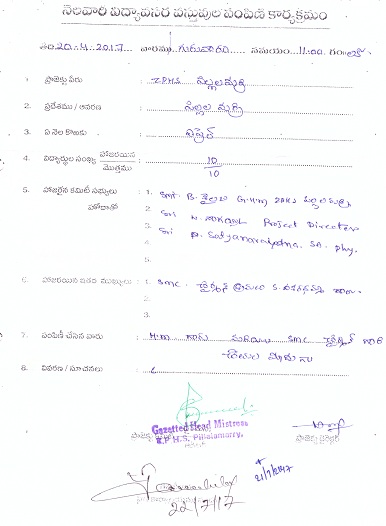 నెలవారి విద్యావసర వస్తువుల పంపిణి కార్యక్రమం
తేది 20-4-2017 వారము గురువారం సమయం 11:00 గం॥లకు
1. ప్రాజెక్టు పేరు : ZPHS పిల్లలమర్రి
2. ప్రదేశము / ఆవరణ : పిల్లలమర్రి
3. ఏ నెల కొఱకు : ఏప్రిల్
4. విద్యార్థుల సంఖ్య హాజరయిన / మొత్తము : 10 / 10
5. హాజరైన కమిటీ సభ్యులు : 1. Smt. B. శైలజ G.HM ZPHS పిల్లలమర్రి
హోదాతో 2. Sri N. Project Director
3. Sri P. Satyanarayana. SA. Phy.
4.
5.
6. హాజరయిన ఇతర ముఖ్యులు : 1. SMC. ఛైర్మన్
2.
3.
7. పంపిణీ చేసిన వారు : H.M గారు మరియు SMC ఛైర్మన్ గారి
చేతుల మీదుగా
8. వివరణ / సూచనలు :
Gazetted Head Mistress
Z.P.H.S. Pillalamarry.
21/7/2017
22/7/17